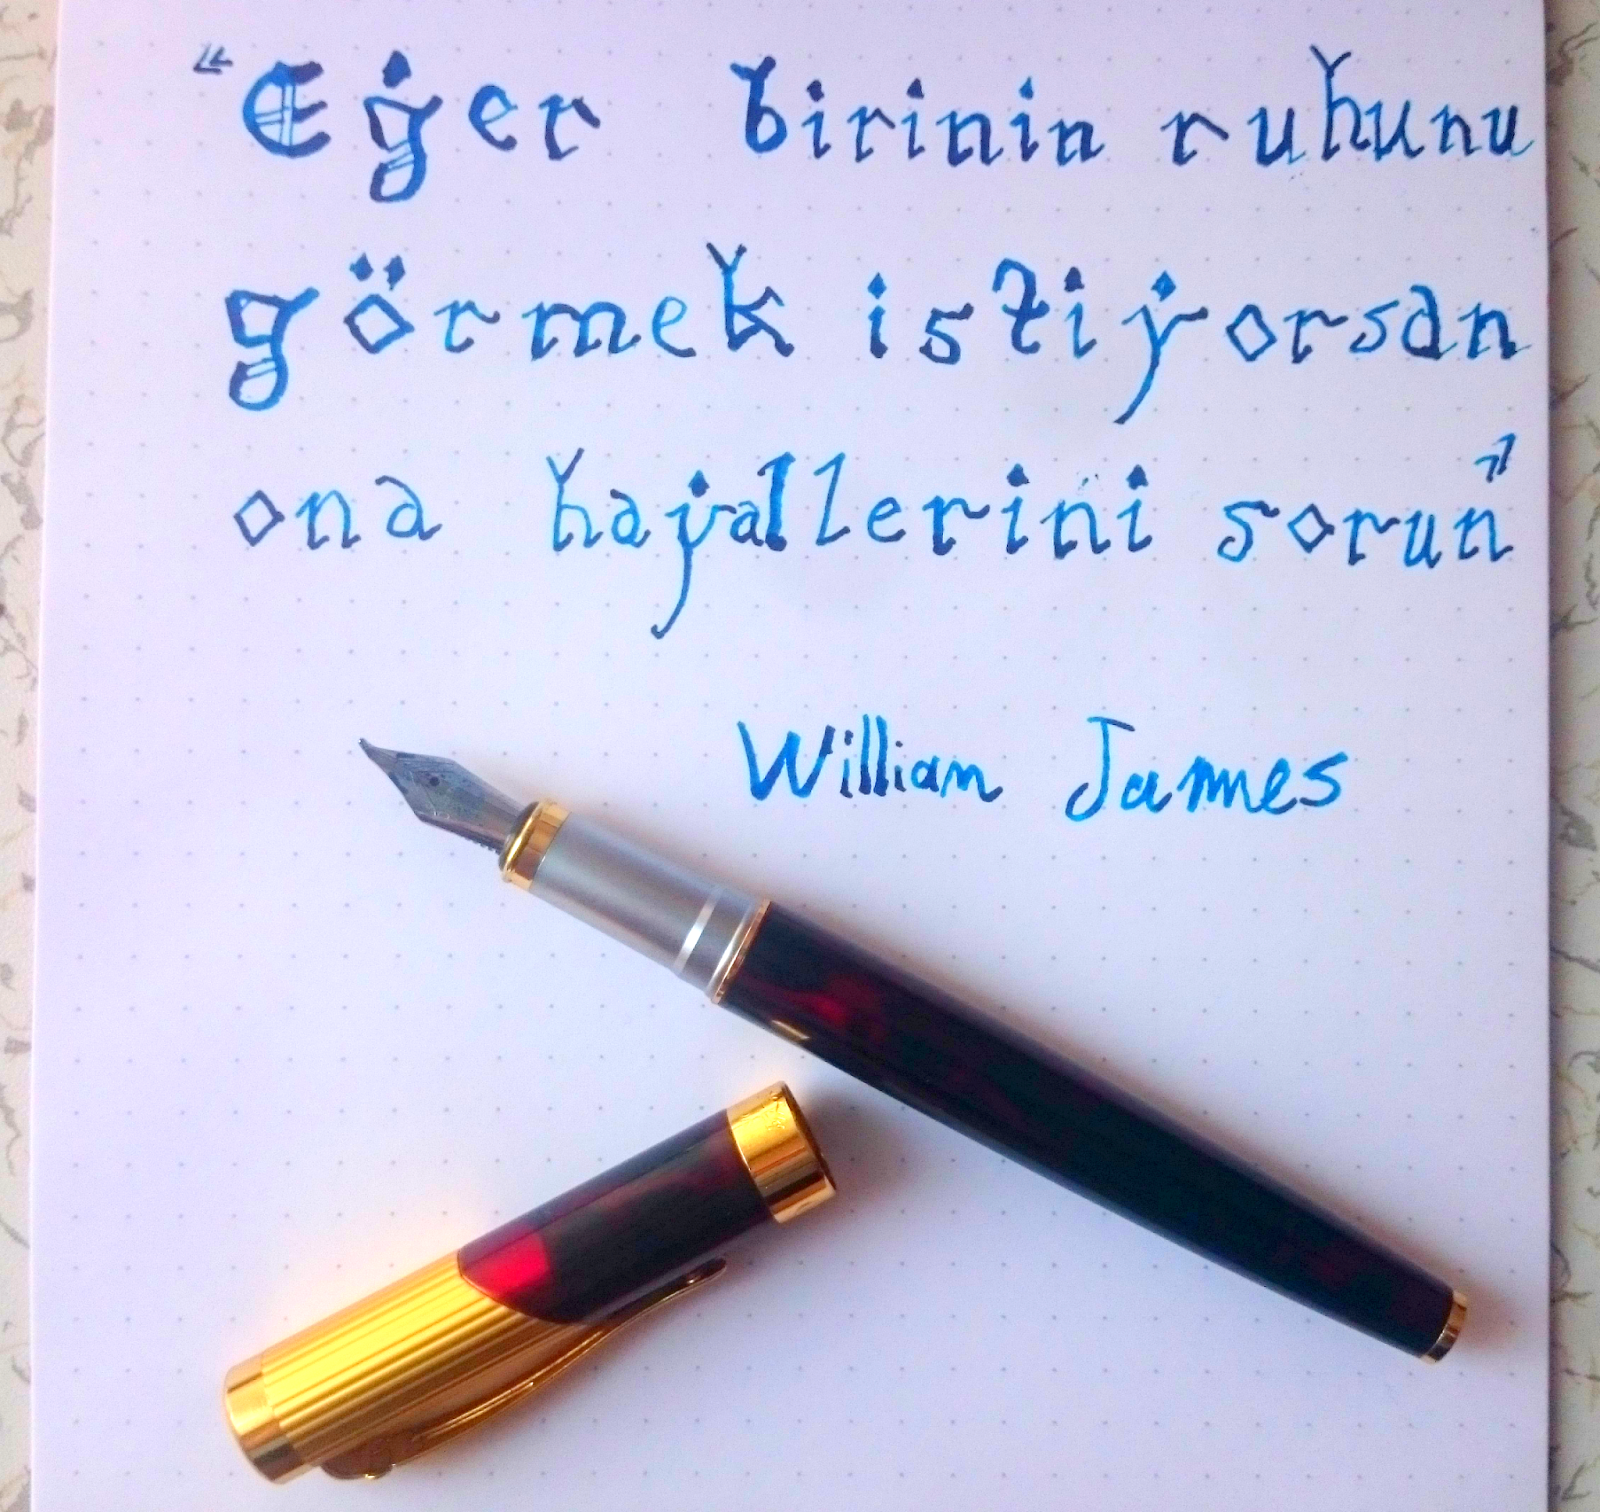 "Eğer birinin ruhunu
görmek istiyorsan
ona hayallerini sorun"
William James